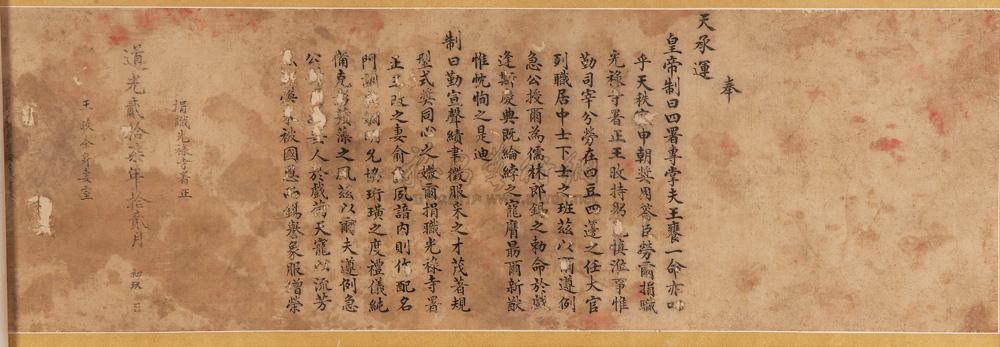 奉
天承運
皇帝制曰四署專掌夫王饔一命亦
乎天秩申朝獎用答臣勞爾捐職
光祿寺署正王政持躬慎淮事惟
勤司宰分勞在四豆四籩之任大官
列職居中士下士之班茲以爾遵例
急公授爾為儒林郎錫之勅命於戲
逢斯慶典既綸綍之寵膺勗爾新猷
惟忱恂之是迪
制曰勤宣聲績聿徵服采之才茂著規
型式獎同心之嬡爾捐職光祿寺署
正王政之妻俞夙諳內則作配名
門訓嫻明允協珩璜之度禮儀純
備克蘋藻之風茲以爾夫遵例急
公人於戲荷天寵以流芳
被國恩而錫譽象服增榮
捐職光祿寺署正
道光貳拾柒年拾貳月 初玖日
王政仝身妻室